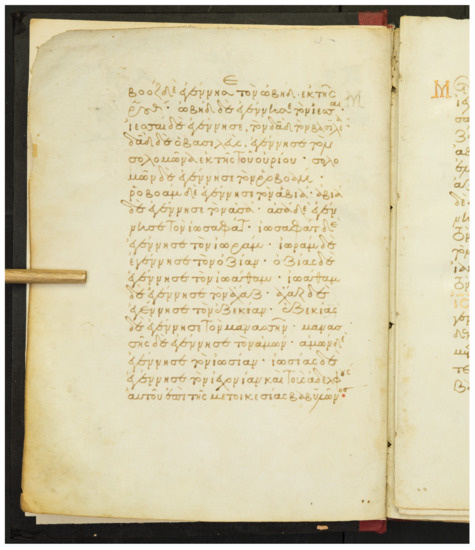 Ε
βοὸζ δὲ ἐγέννησε τὸν ὠβὴδ ἐκ τῆς
ῥούθ· ὠβὴδ δὲ ἐγέννησε τὸν ἰεσσαί·
ἰεσσαὶ δὲ ἐγέννησε τὸν δαδ τὸν βασιλέα
δαδ δὲ ὁ βασιλεὺς ἐγέννησε τὸν
σολομῶνα ἐκ τῆς τοῦ οὐρίου· σολο
μὼν δὲ ἐγέννησε τὸν ῥοβοάμ·
ῥοβοὰμ δὲ ἐγέννησε τὸν ἀβιά· ἀβιὰ
δὲ ἐγέννησε τὸν ἀσά· ἀσὰ δὲ ἐγέν
νησε τὸν ἰωσαφάτ· ἰωσαφὰτ δὲ
ἐγέννησε τὸν ἰωράμ· ἰωρὰμ δὲ
ἐγέννησε τὸν ὀζίαν· ὀζίας δὲ
ἐγέννησε τὸν ἰωάθαμ· ἰωάθαμ
δὲ ἐγέννησε τὸν ἄχαζ· ἄχαζ δὲ
ἐγέννησε τὸν ἐζεκίαν· ἐζεκίας
δὲ ἐγέννησε τὸν μανασσῆν· μανασ
σῆς δὲ ἐγέννησε τὸν ἀμών· ἀμὼν δὲ
ἐγέννησε τὸν ἰωσίαν· ἰωσίας δὲ
ἐγέννησε τὸν ἰεχονίαν καὶ τοὺς ἀδελφοὺς
αὐτοῦ ἐπὶ τῆς μετοικεσίας βαβυλῶνος